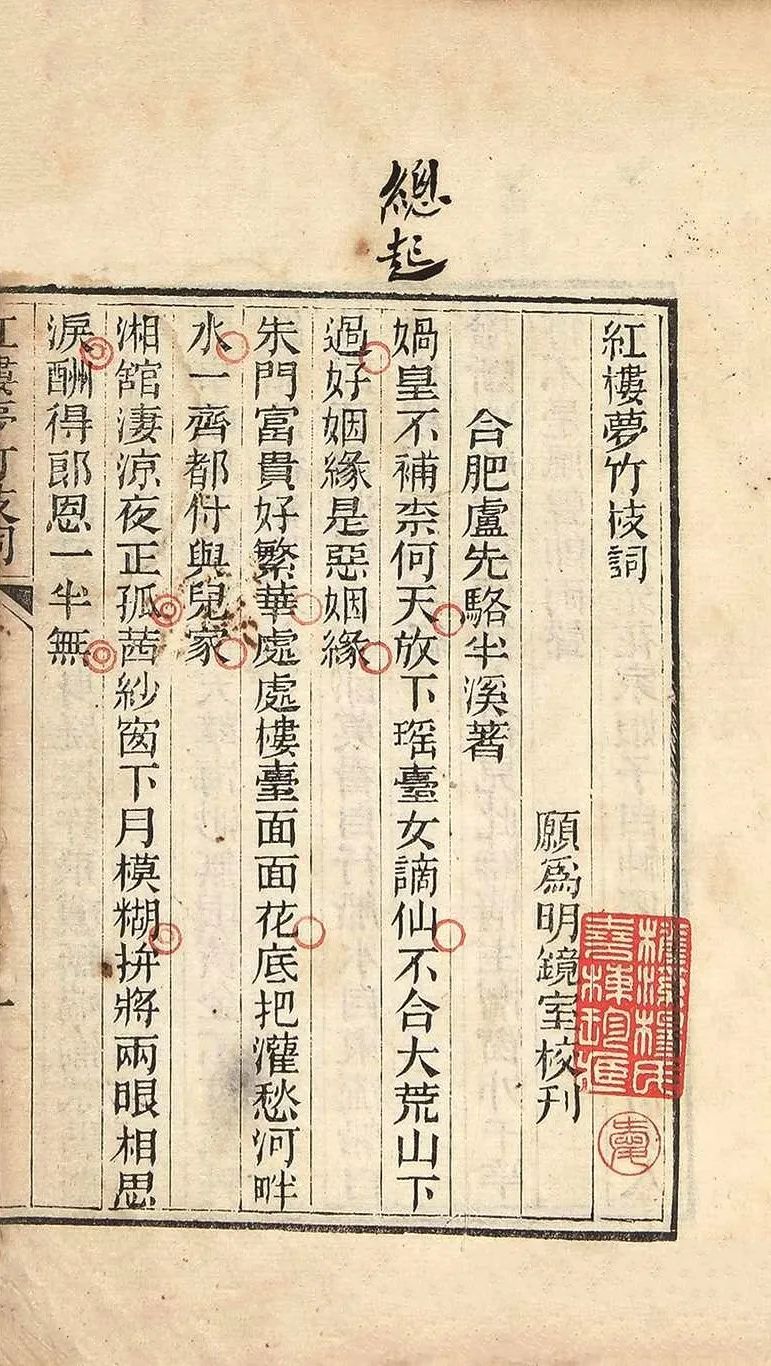 總起
紅樓夢竹枝詞
願爲明鏡室校刊
合肥盧先駱半溪著
媧皇不補柰何天放下瑶臺女謫仙不合大荒山下
過好姻緣是惡姻緣
朱門富貴好繁華處處樓臺面面花底把灌愁河畔
水一齊都付與兒家
湘館凄涼夜正孤茜紗窗下月模糊拚將兩眼相思
淚酬得郎恩一半無
紅樓夢竹枝詞
一